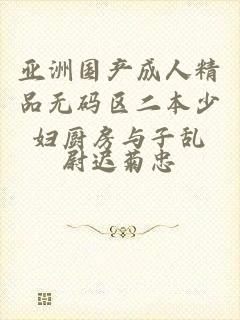 亚洲国产成人精
品无码区二本少
妇厨房与子乱
尉迟菊忠